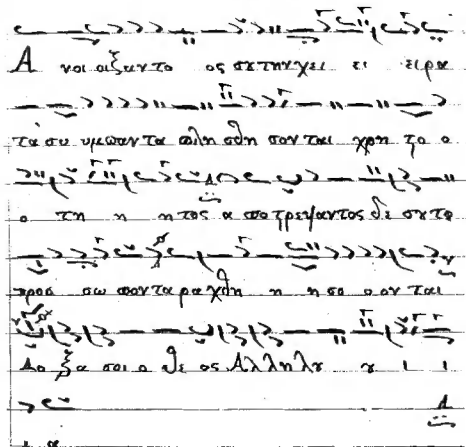 Α νοι οιξαντο ος σȣ την χει ει ειρα
τα συ υμπαντα πλη σθη σον ται χρη το ο
ο τη η ητος α πο τρεψαντος δε σȣ το
προσ σω πον τα ρα χθη η ησο ο ονται
Δο ξα σοι ο θε ος Αλληλȣ ȣ ι ι
ι α